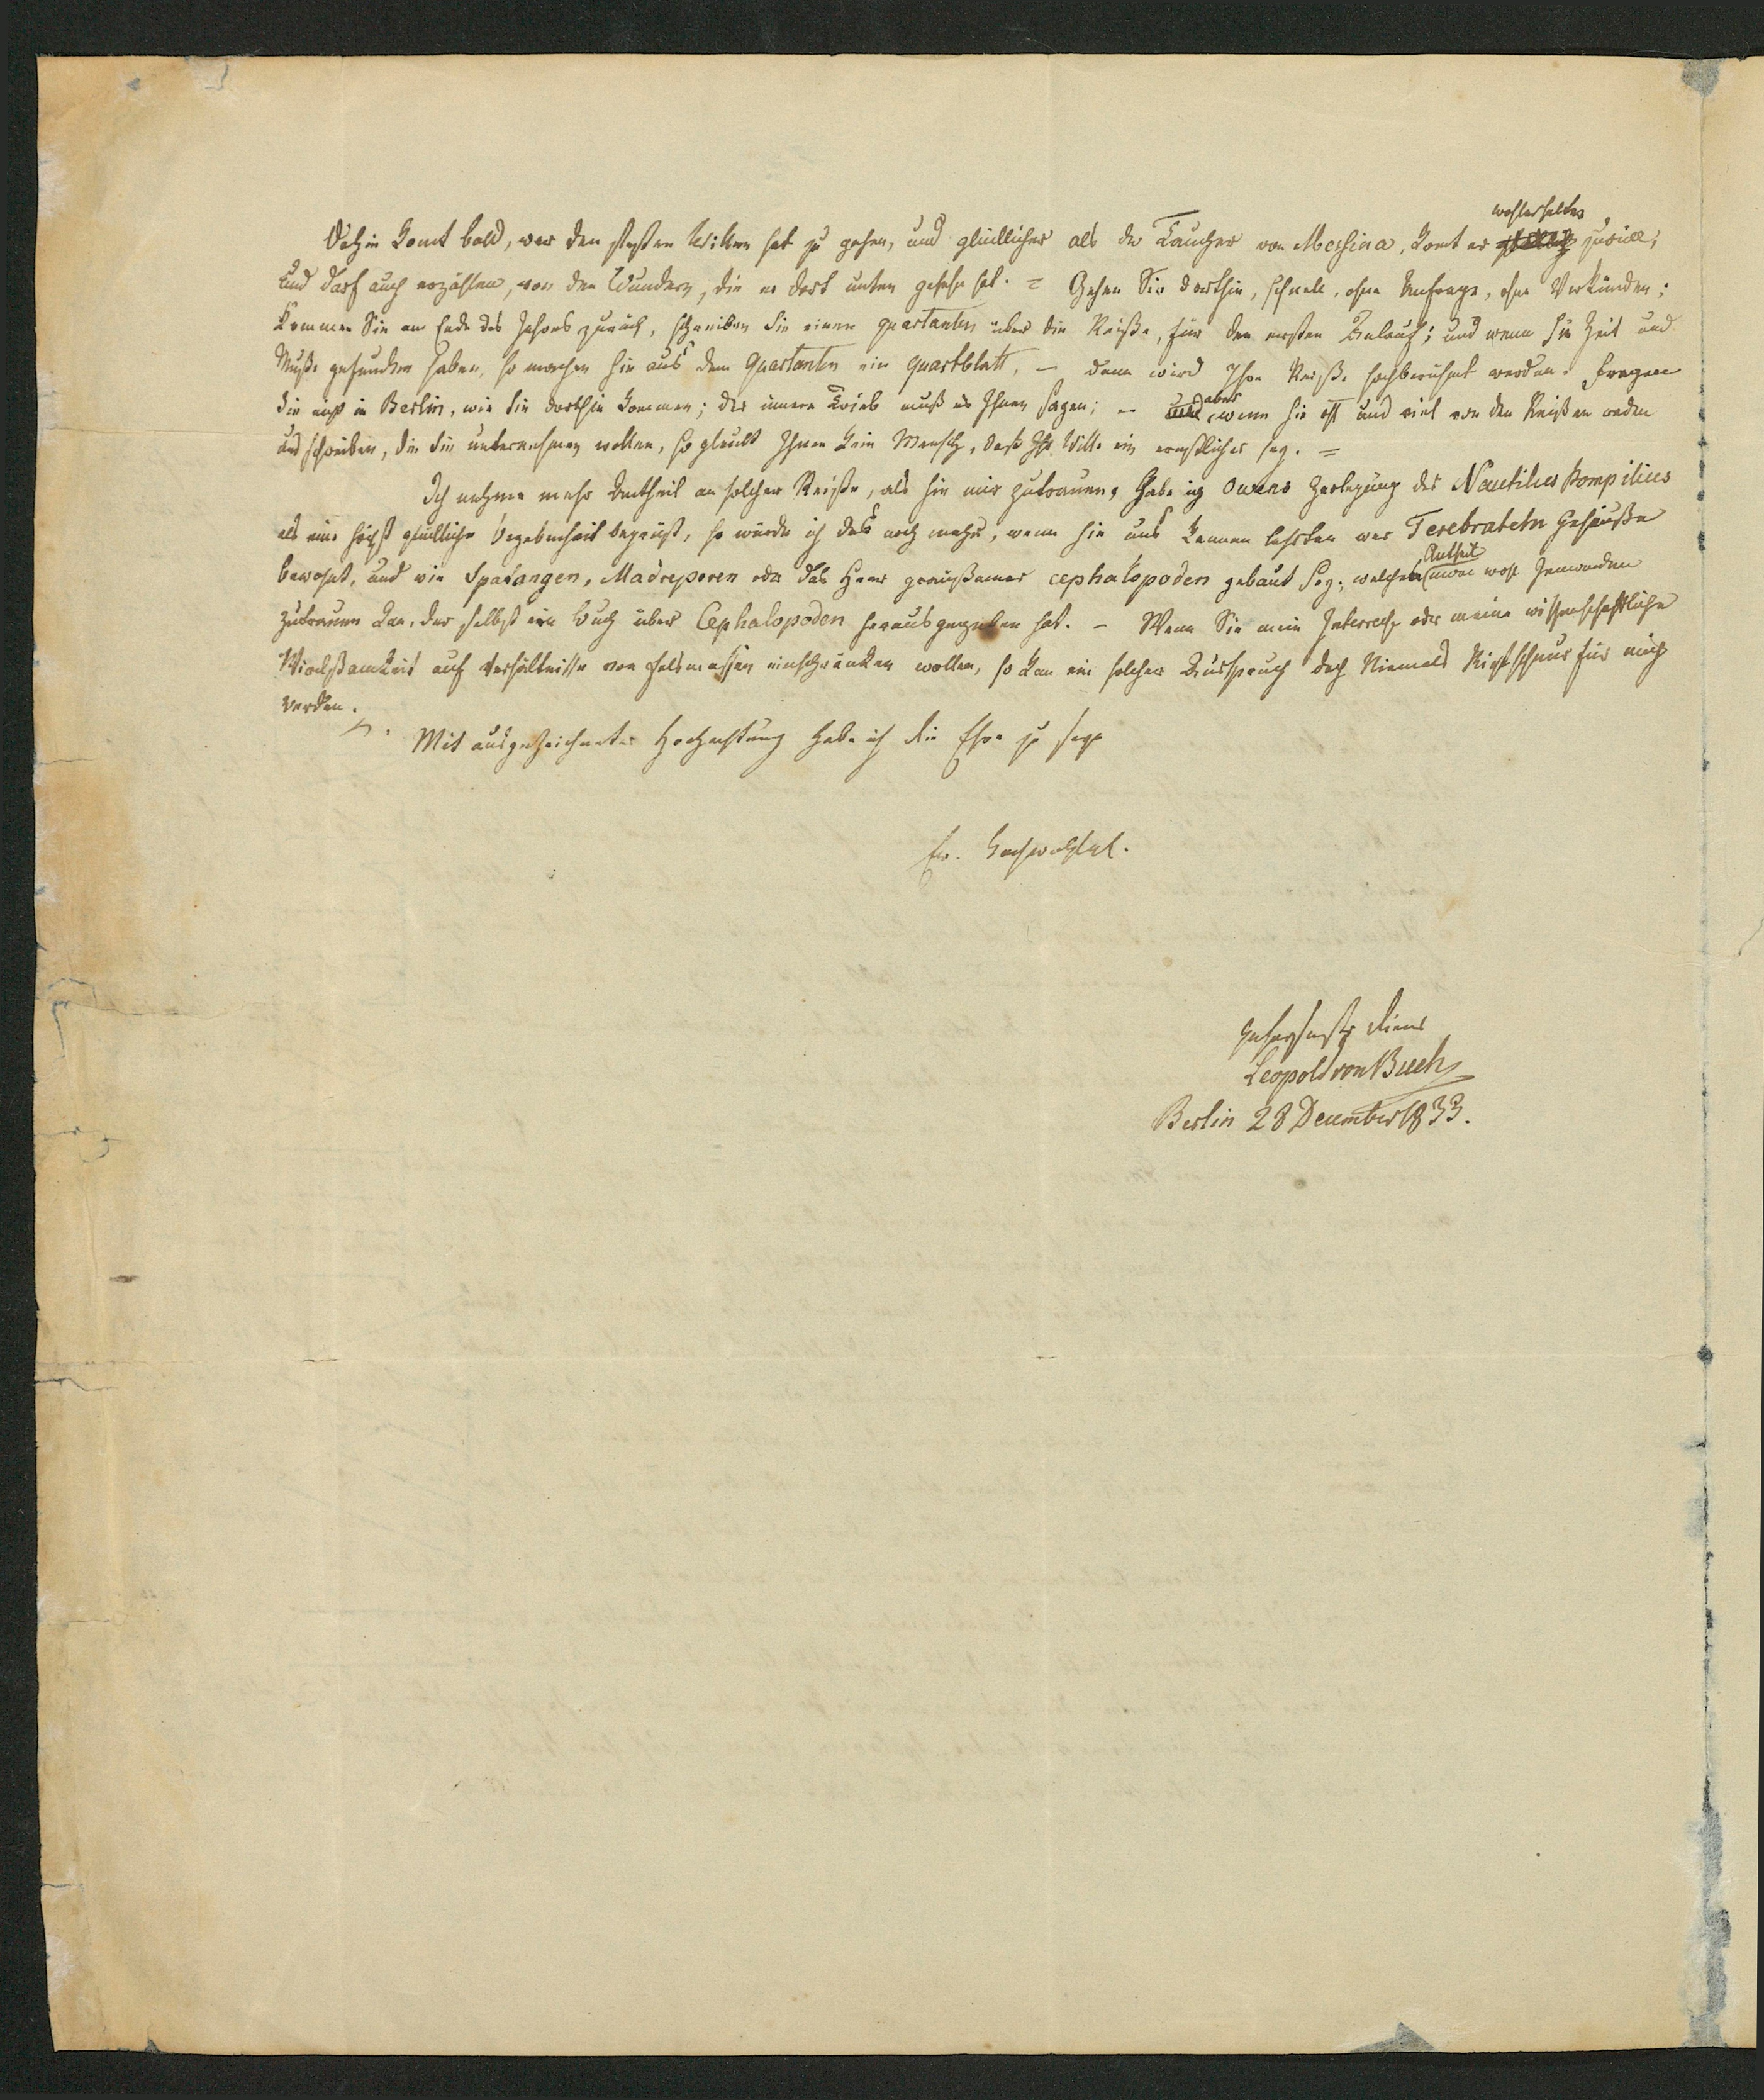 Dahin komt bald, wer den festen Willen hat zu gehen, und glücklicher als der Taucher von Messina, komt er wohlerhalten zurück;
und darf auch erzählen, von den Wundern, die er dort unten gesehn hat. = Gehen Sie dorthin, schnell, ohne Anfrage, ohne Verkünden;
kommen Sie am Ende des Jahres zurück, schreiben Sie einen Quartanten über die Reise, für den ersten Anlauf; und wenn Sie Zeit und
Muße gefunden haben, so machen Sie aus dem Quartanten ein Quartblatt, – dann wird Ihre Reiße hochberühmt werden. Fragen
Sie nicht in Berlin, wie Sie dorthin kommen; der innere Trieb muß es Ihnen sagen; – und aber wenn Sie oft und viel von den Reißen reden
und schreiben, die Sie unternehmen wollen, so glaubt Ihnen kein Mensch, daß Ihr Wille ein ernstlicher sey. =
Ich nehme mehr Antheil an solcher Reiße, als Sie mir zutrauen. Habe ich Owens Zerlegung des Nautilus Pompilius
als eine höchst glückliche Begebenheit begrüßt, so würde ich das noch mehr, wenn Sie uns kennen lehrten wer Terebrateln Gehäuße
bewohnt, und wie Spatangen, Madreporen oder das Heer grausamer cephalopoden gebaut sey; welchen Antheil man wohl Jemanden
zutrauen kan, der selbst ein Buch über Cephalopoden herausgegeben hat. – Wenn Sie mein Interesse oder meine wissenschaftliche
Wirksamkeit auf Verhältnisse von Felsmassen einschränken wollen, so kan ein solcher Ausspruch doch Niemals Richtschnur für mich
werden.
Mit ausgezeichneter Hochachtung habe ich die Ehre zu seyn
Ew. Hochwohlgeb.
gehorsamster Diener
Leopold von Buch
Berlin 28 December 1833.